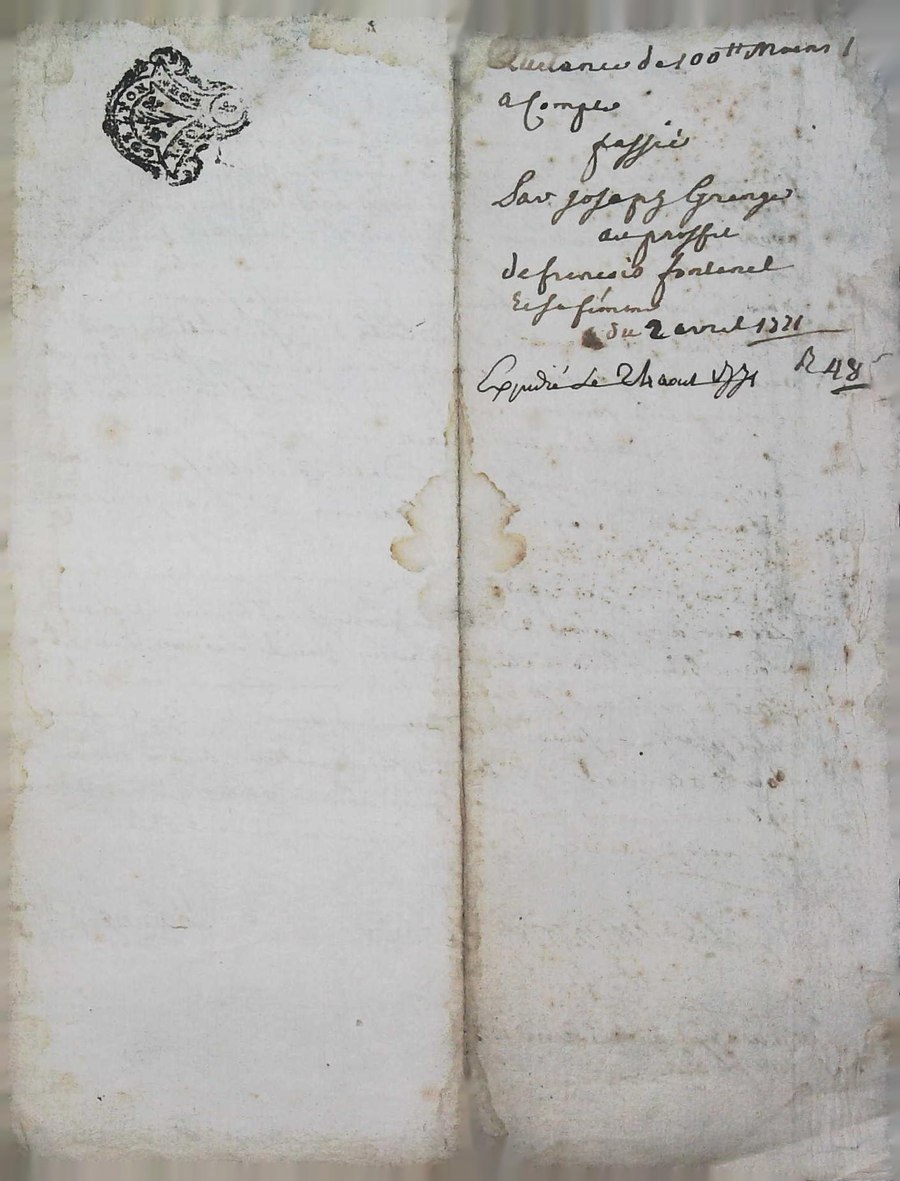 Quittance de 100tt Moins
a Compte
passée
Par Joseph Grange
au proffit
de francois fontanel
Et sa femme
du 2 avril 1771
Expedié Le 24 aout 1771 R 48